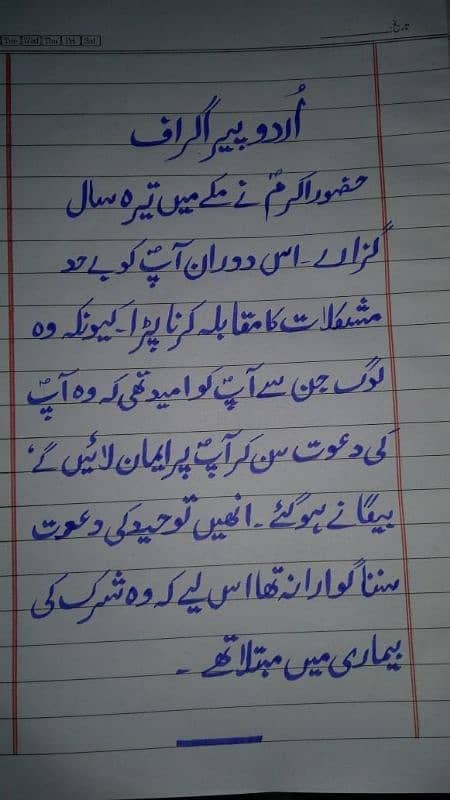 تاریخ:
Tue Wed Thu Fri Sat
اُردو پیراگراف
حضور اکرمؐ نے مکے میں تیرہ سال
گزارے۔ اس دوران آپؐ کو بے حد
مشکلات کا مقابلہ کرنا پڑا۔ کیونکہ وہ
لوگ جن سے آپؐ کو امید تھی کہ وہ آپؐ
کی دعوت سن کر آپؐ پر ایمان لائیں گے،
بیگانے ہو گئے۔ انھیں توحید کی دعوت
سننا گوارا نہ تھا اس لیے کہ وہ شرک کی
بیماری میں مبتلا تھے۔